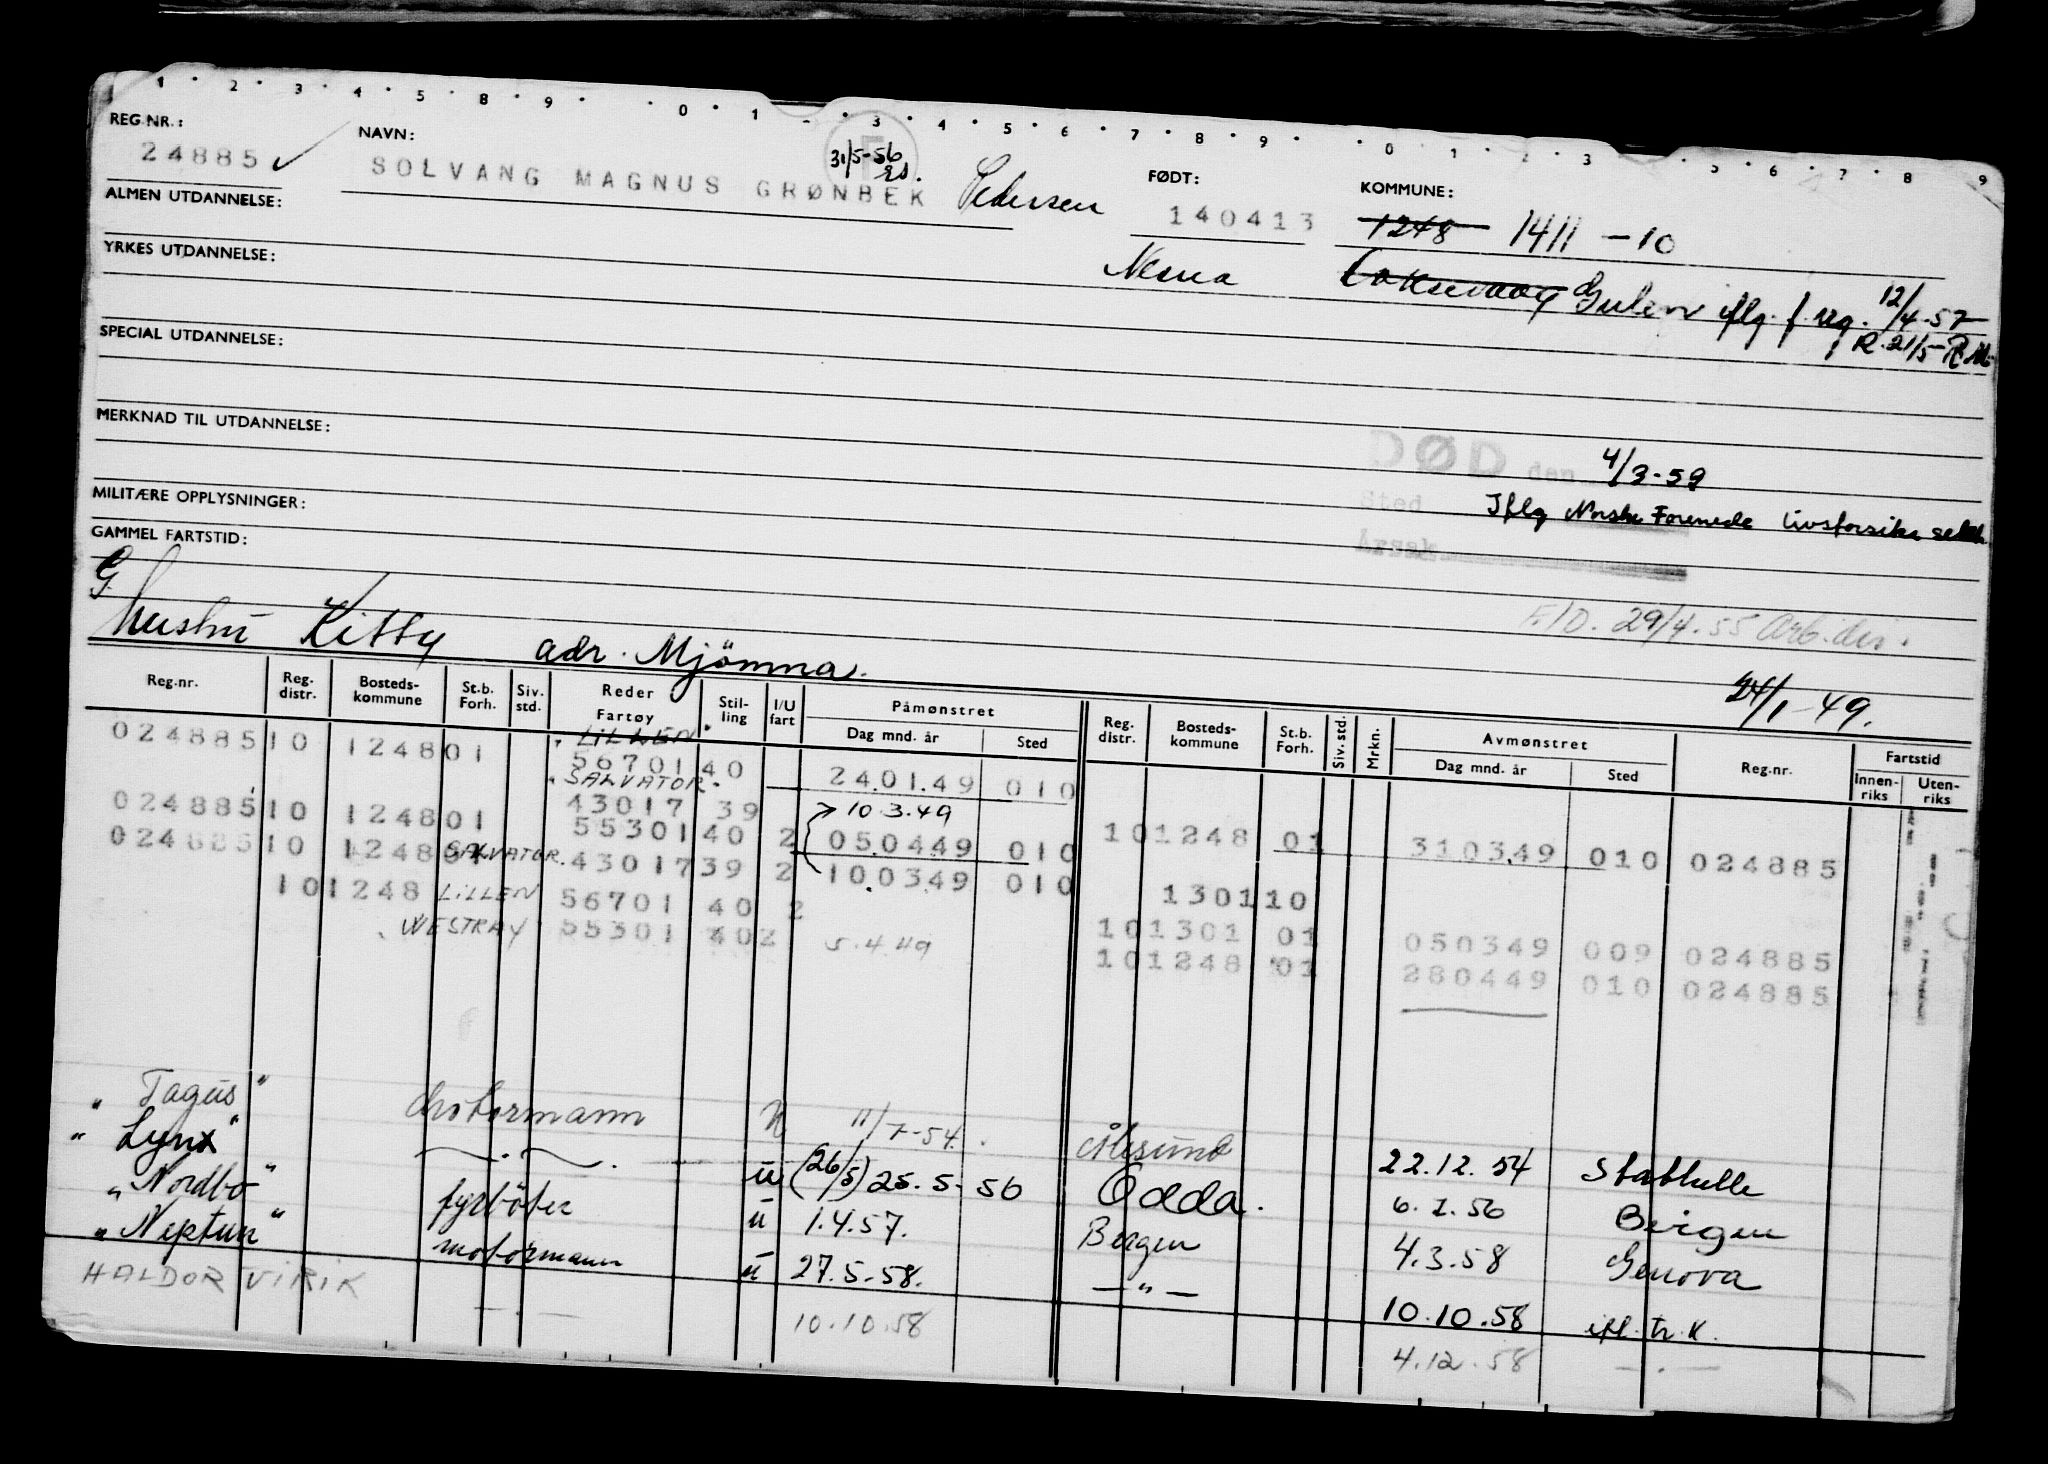 1 2 3 4 5 8 9 0 1 3 4 5 6 7 8 9 0 1 2 3 5 6 7 8 9
REG.NR.: NAVN: 31/5-56 FØDT: KOMMUNE:
24885 ✓ SOLVANG MAGNUS GRØNBEK Pedersen 140413 1248 1411 -10
ALMEN UTDANNELSE:
Nesna Gulen iflg. f. reg. 12/4-57
YRKES UTDANNELSE:
R. 21/5-
SPECIAL UTDANNELSE:
MERKNAD TIL UTDANNELSE:
DØD den 4/3-59
MILITÆRE OPPLYSNINGER:
Sted Iflg Norske Forenede livsforsikr. selsk
GAMMEL FARTSTID:
Årsak
G.
F/D. 29/4.55 Arb.dir.
hustru Kitty adr. Mjömna.
24/1-49.
Reg.nr. Reg. distr. Bosteds-kommune St.b. Forh. Siv. std. Reder Fartøy Stil-ling I/U fart Påmønstret Dag mnd. år Sted Reg. distr. Bosteds-kommune St.b. Forh. Siv. std. Mrkn. Avmønstret Dag mnd. år Sted Reg.nr. Fartstid Innen-riks Uten-riks
LILLEN
024885 10 1248 01 56701 40 240149 010
SALVATOR
024885 10 1248 01 43017 39 10.3.49
55301 40 2 050449 010 10 1248 01 310349 010 024885
024885 10 1248 01 SALVATOR. 43017 39 2 100349 010
10 1248 LILLEN 56701 40 2 1301 10
WESTRAY 55301 402 5.4.49 10 1301 01 050349 009 024885
10 1248 01 280449 010 024885
"Tagus" motormann 11/7-54. Ålesund 22.12.54 Stathelle
"Lynx" —.— u (26/5) 25.5-56 Odda. Bergen
"Nordbo" fyrböter u 1.4.57. Bergen 4.3.58 Genova
"Neptun" motormann u 27.5-58. —"— 10.10.58 ifl. tr. k.
HALDOR VIRIK —.— 10.10.58 4.12.58 —.—